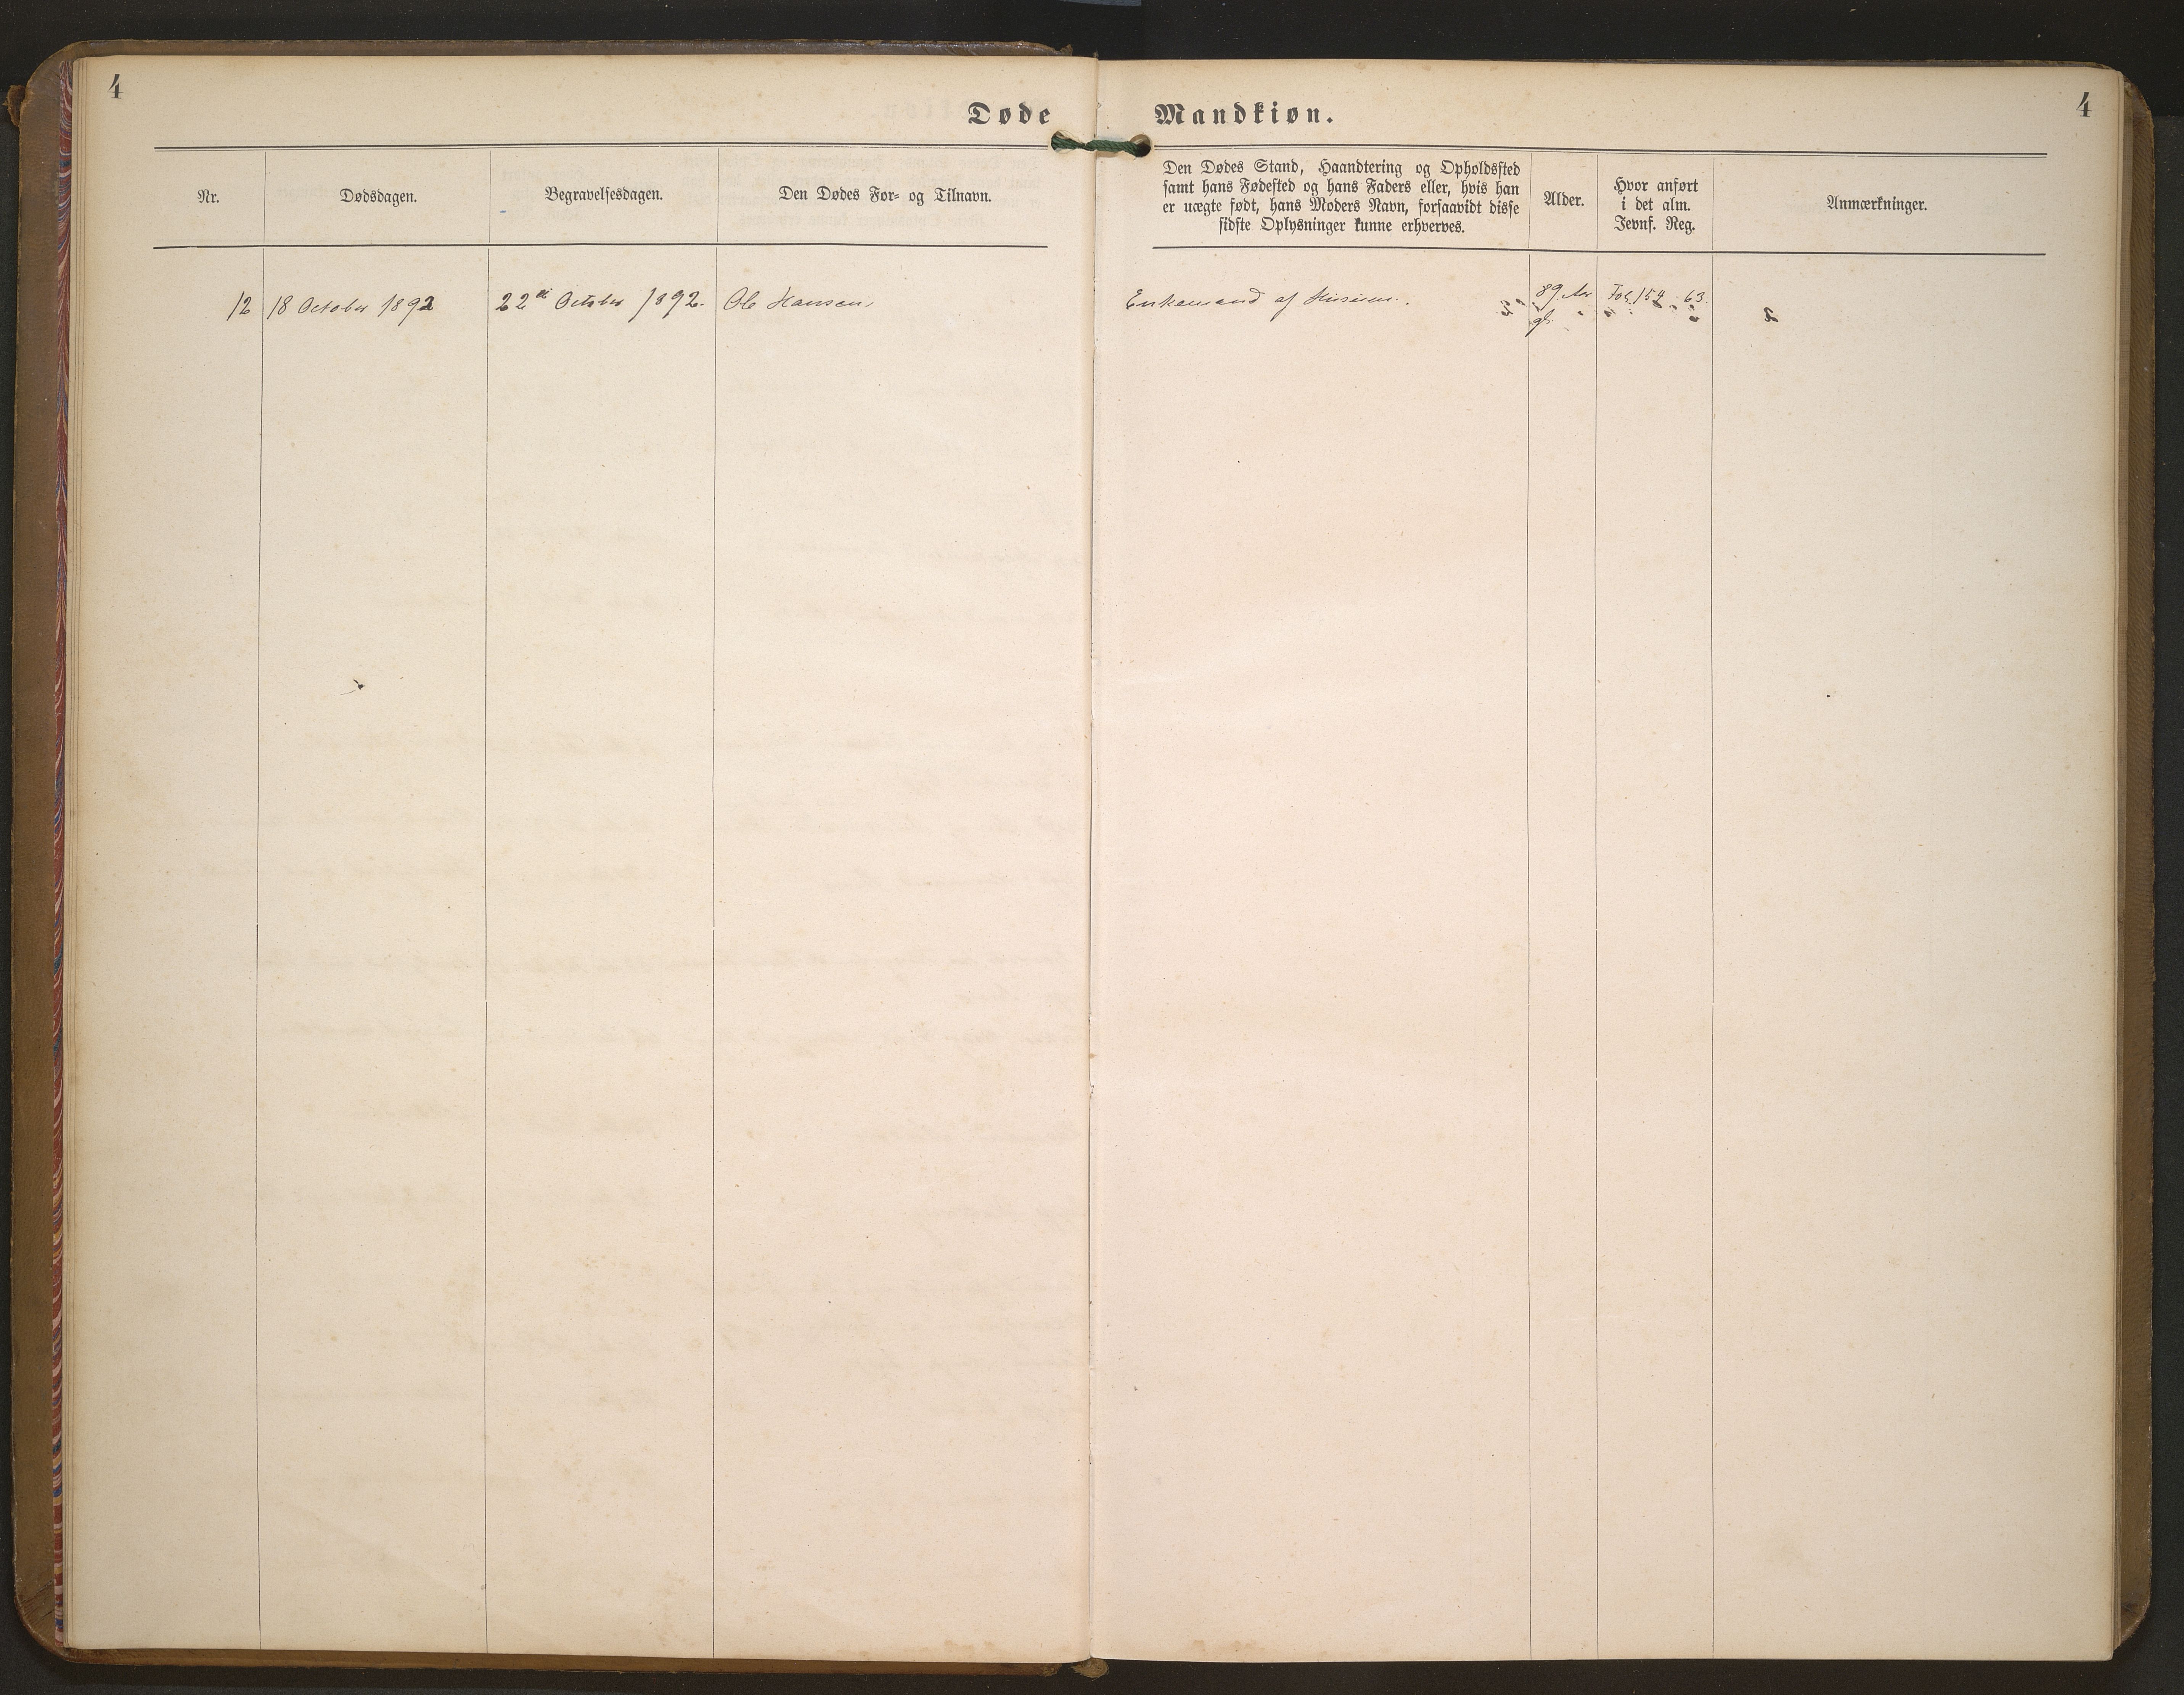 4
Døde Mandkiøn.
4
Nr.
Dødsdagen.
Begravelsesdagen.
Den Dødes For- og Tilnavn.
Den Dødes Stand, Haandtering og Opholdssted
samt hans Fødested og hans Faders eller, hvis han
er uægte født, hans Moders Navn, forsaavidt disse
sidste Oplysninger kunne erhverves.
Alder.
Hvor anført
i det alm.
Jevnf. Reg.
Anmærkninger.
12 18 October 1892 22de October 1892. Ole Hansen, Enkemand af 89 Aar Fol. 154 63.
gl.